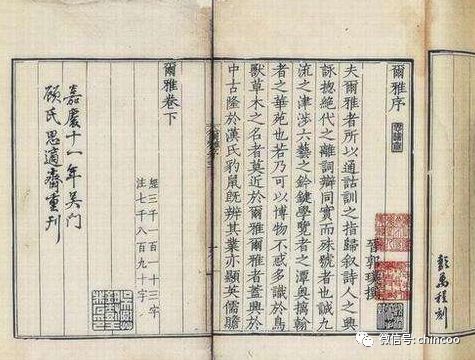 彭萬程刻
爾雅序
晉郭璞撰
夫爾雅者所以通詁訓之指歸叙詩人之興
詠揔絶代之離詞辯同實而殊號者也誠九
流之津涉六藝之鈐鍵學覽者之潭奧摛翰
者之華苑也若乃可以博物不惑多識於鳥
獸草木之名者莫近於爾雅爾雅者蓋興於
中古隆於漢氏豹鼠既辨其業亦顯英儒贍
爾雅卷下
經三千一百一十三字
注七千八百九十字
嘉慶十一年吳門
顧氏思適齋重刊
微信号: chincoo